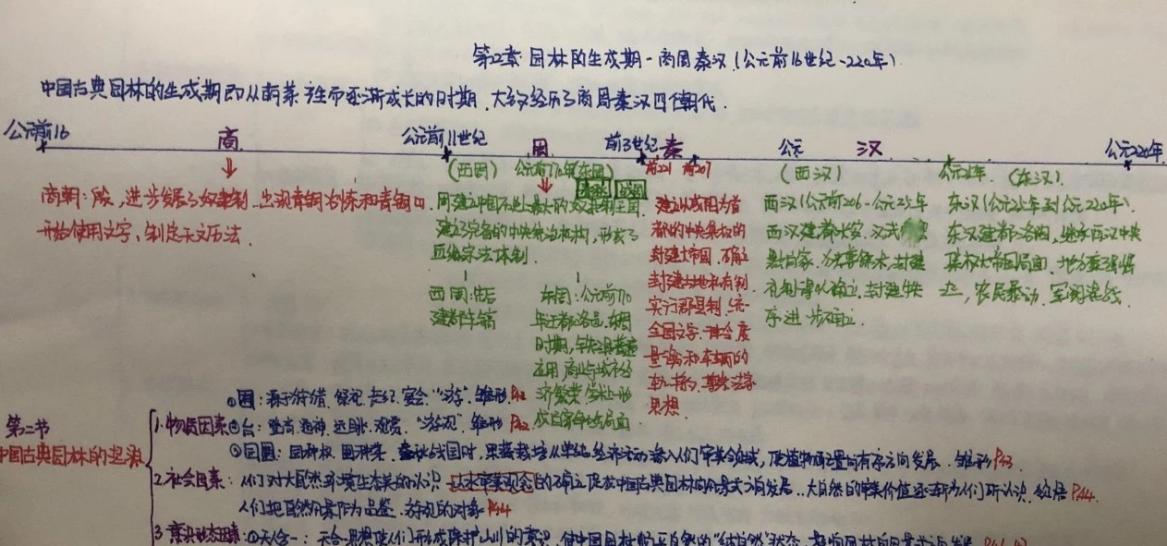 第二章:园林的生成期-商周秦汉(公元前16世纪-220年)
中国古典园林的生成期即从萌芽产生而逐渐成长的时期.大约经历了商周秦汉四个朝代.
公元前16 商 公元前11世纪 周 前3世纪 秦 公元 汉 公元220年
(西周) 公元前770年(东周) 春秋 战国 前221 前207 (西汉) 公元25年 (东汉)
商朝:殷,进步发展了奴隶制.出现青铜冶炼和青铜
开始使用文字,制定天文历法.
周建立中国历史上最大的奴隶制王国
建立完备的中央统治机构,形成了
血缘宗法体制.
西周:先后
建都丰镐
东周:公元前770
年迁都洛邑.东周
时期,铁工具普遍
应用.商业与城市经
济繁荣
建立以咸阳为首
都的中央集权的
封建大帝国.确立
封建土地私有制
实行郡县制,统一
全国文字、律令、度
量衡和车辆的
轨.尊崇法家
思想.
西汉(公元前206-公元25年
西汉建都长安.汉武
封建
礼制得以确立,封建秩
序进一步确立.
东汉(公元25年到公元220年).
东汉建都洛阳,继承西汉中央
集权大帝国局面.地方豪强崛
起,农民暴动,军阀混战.
第二节
中国古典园林的起源
1.物质因素
①囿:源于狩猎.祭祀.宴会."游".雏形 P42
②台:登高.通神.远眺.观赏."游观".雏形 P42
③园圃:园种树 圃种菜.春秋战国时,果蔬栽培从单纯经济活动渗入人们审美领域,促植物配置向有序方向发展.雏形 P43
2.社会因素:人们对大自然环境生态美的认识-山水审美观念的确立促成中国古典园林向风景式方向发展.大自然的审美价值逐渐为人们所认识.领悟 P44
人们把自然风景作为品鉴.游观的对象 P44
3.意识形态因素:①天人合一:天人合一思想使人们形成保护山川的意识,使中国园林